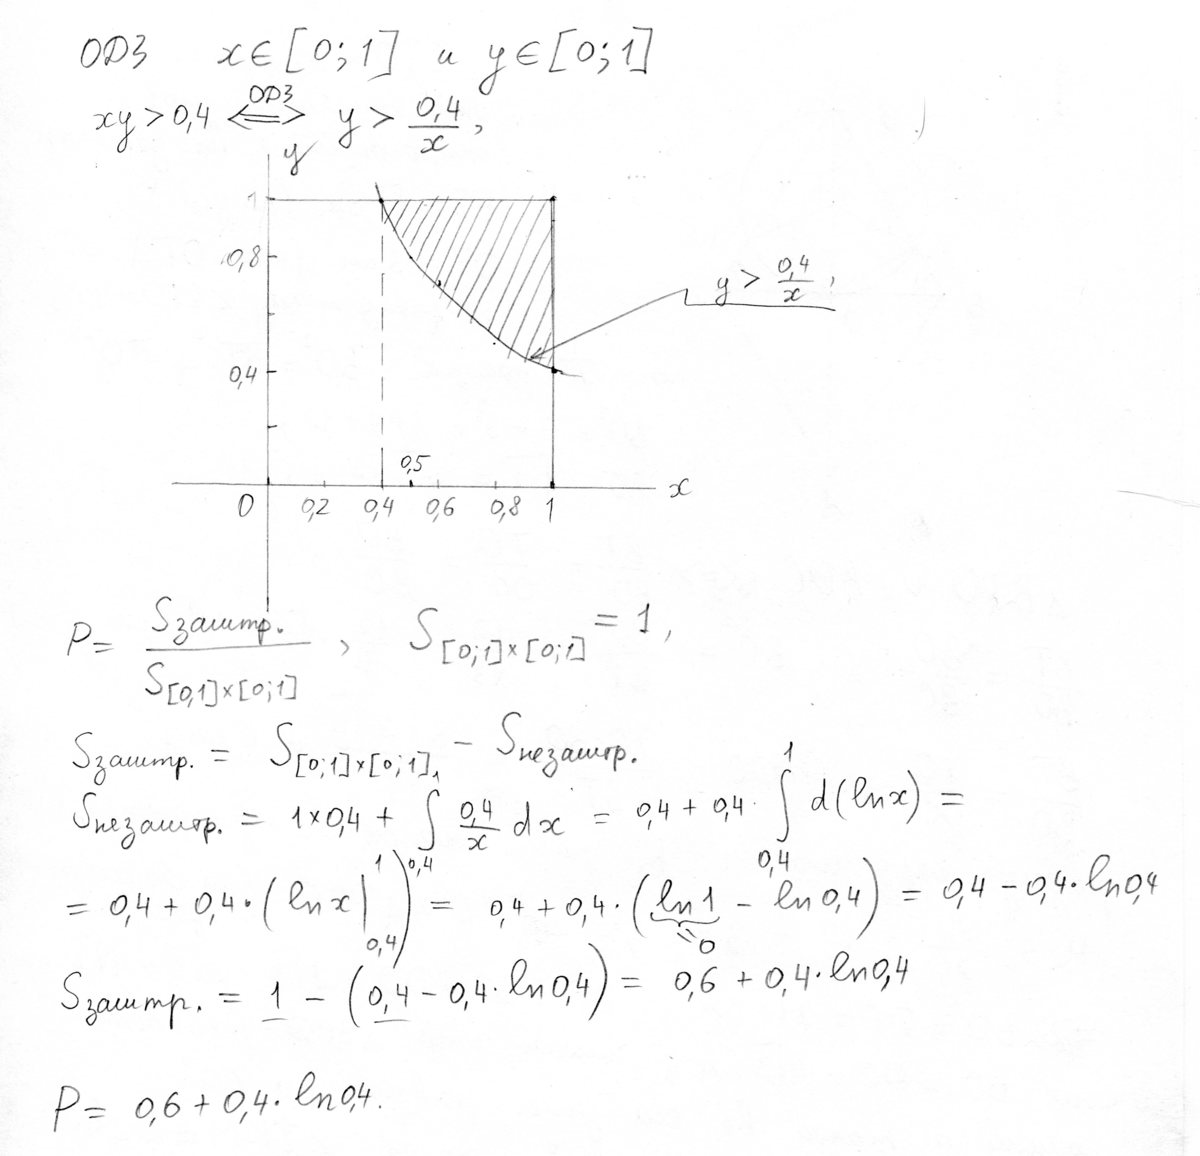 ОДЗ x∈[0;1] и y∈[0;1]
xy>0,4 ⟺ y > 0,4/x,
ОДЗ
y
1
0,8
y > 0,4/x,
0,4
0,5
0 0,2 0,4 0,6 0,8 1 x
P = Sзаштр. / S[0,1]×[0;1] , S[0;1]×[0;1] = 1,
Sзаштр. = S[0;1]×[0;1] − Sнезаштр.
Sнезаштр. = 1×0,4 + ∫_{0,4}^{1} 0,4/x dx = 0,4 + 0,4 · ∫_{0,4}^{1} d(ln x) =
= 0,4 + 0,4 · (ln x |_{0,4}^{1}) = 0,4 + 0,4 · (ln 1 − ln 0,4) = 0,4 − 0,4 · ln 0,4
=0
Sзаштр. = 1 − (0,4 − 0,4 · ln 0,4) = 0,6 + 0,4 · ln 0,4
P = 0,6 + 0,4 · ln 0,4.